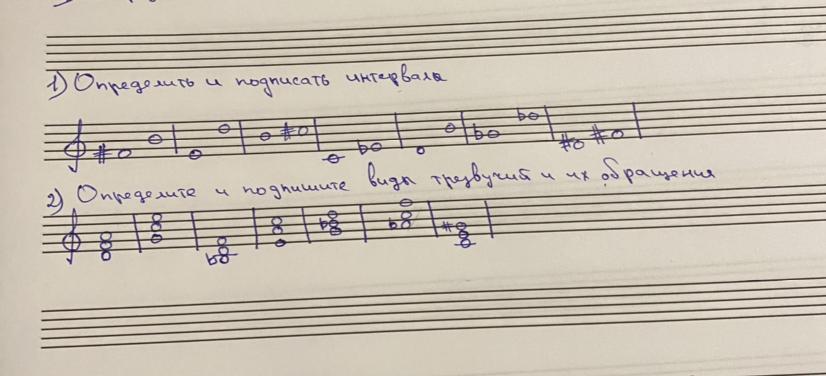 1) Определить и подписать интервалы
2) Определите и подпишите виды трезвучий и их обращения